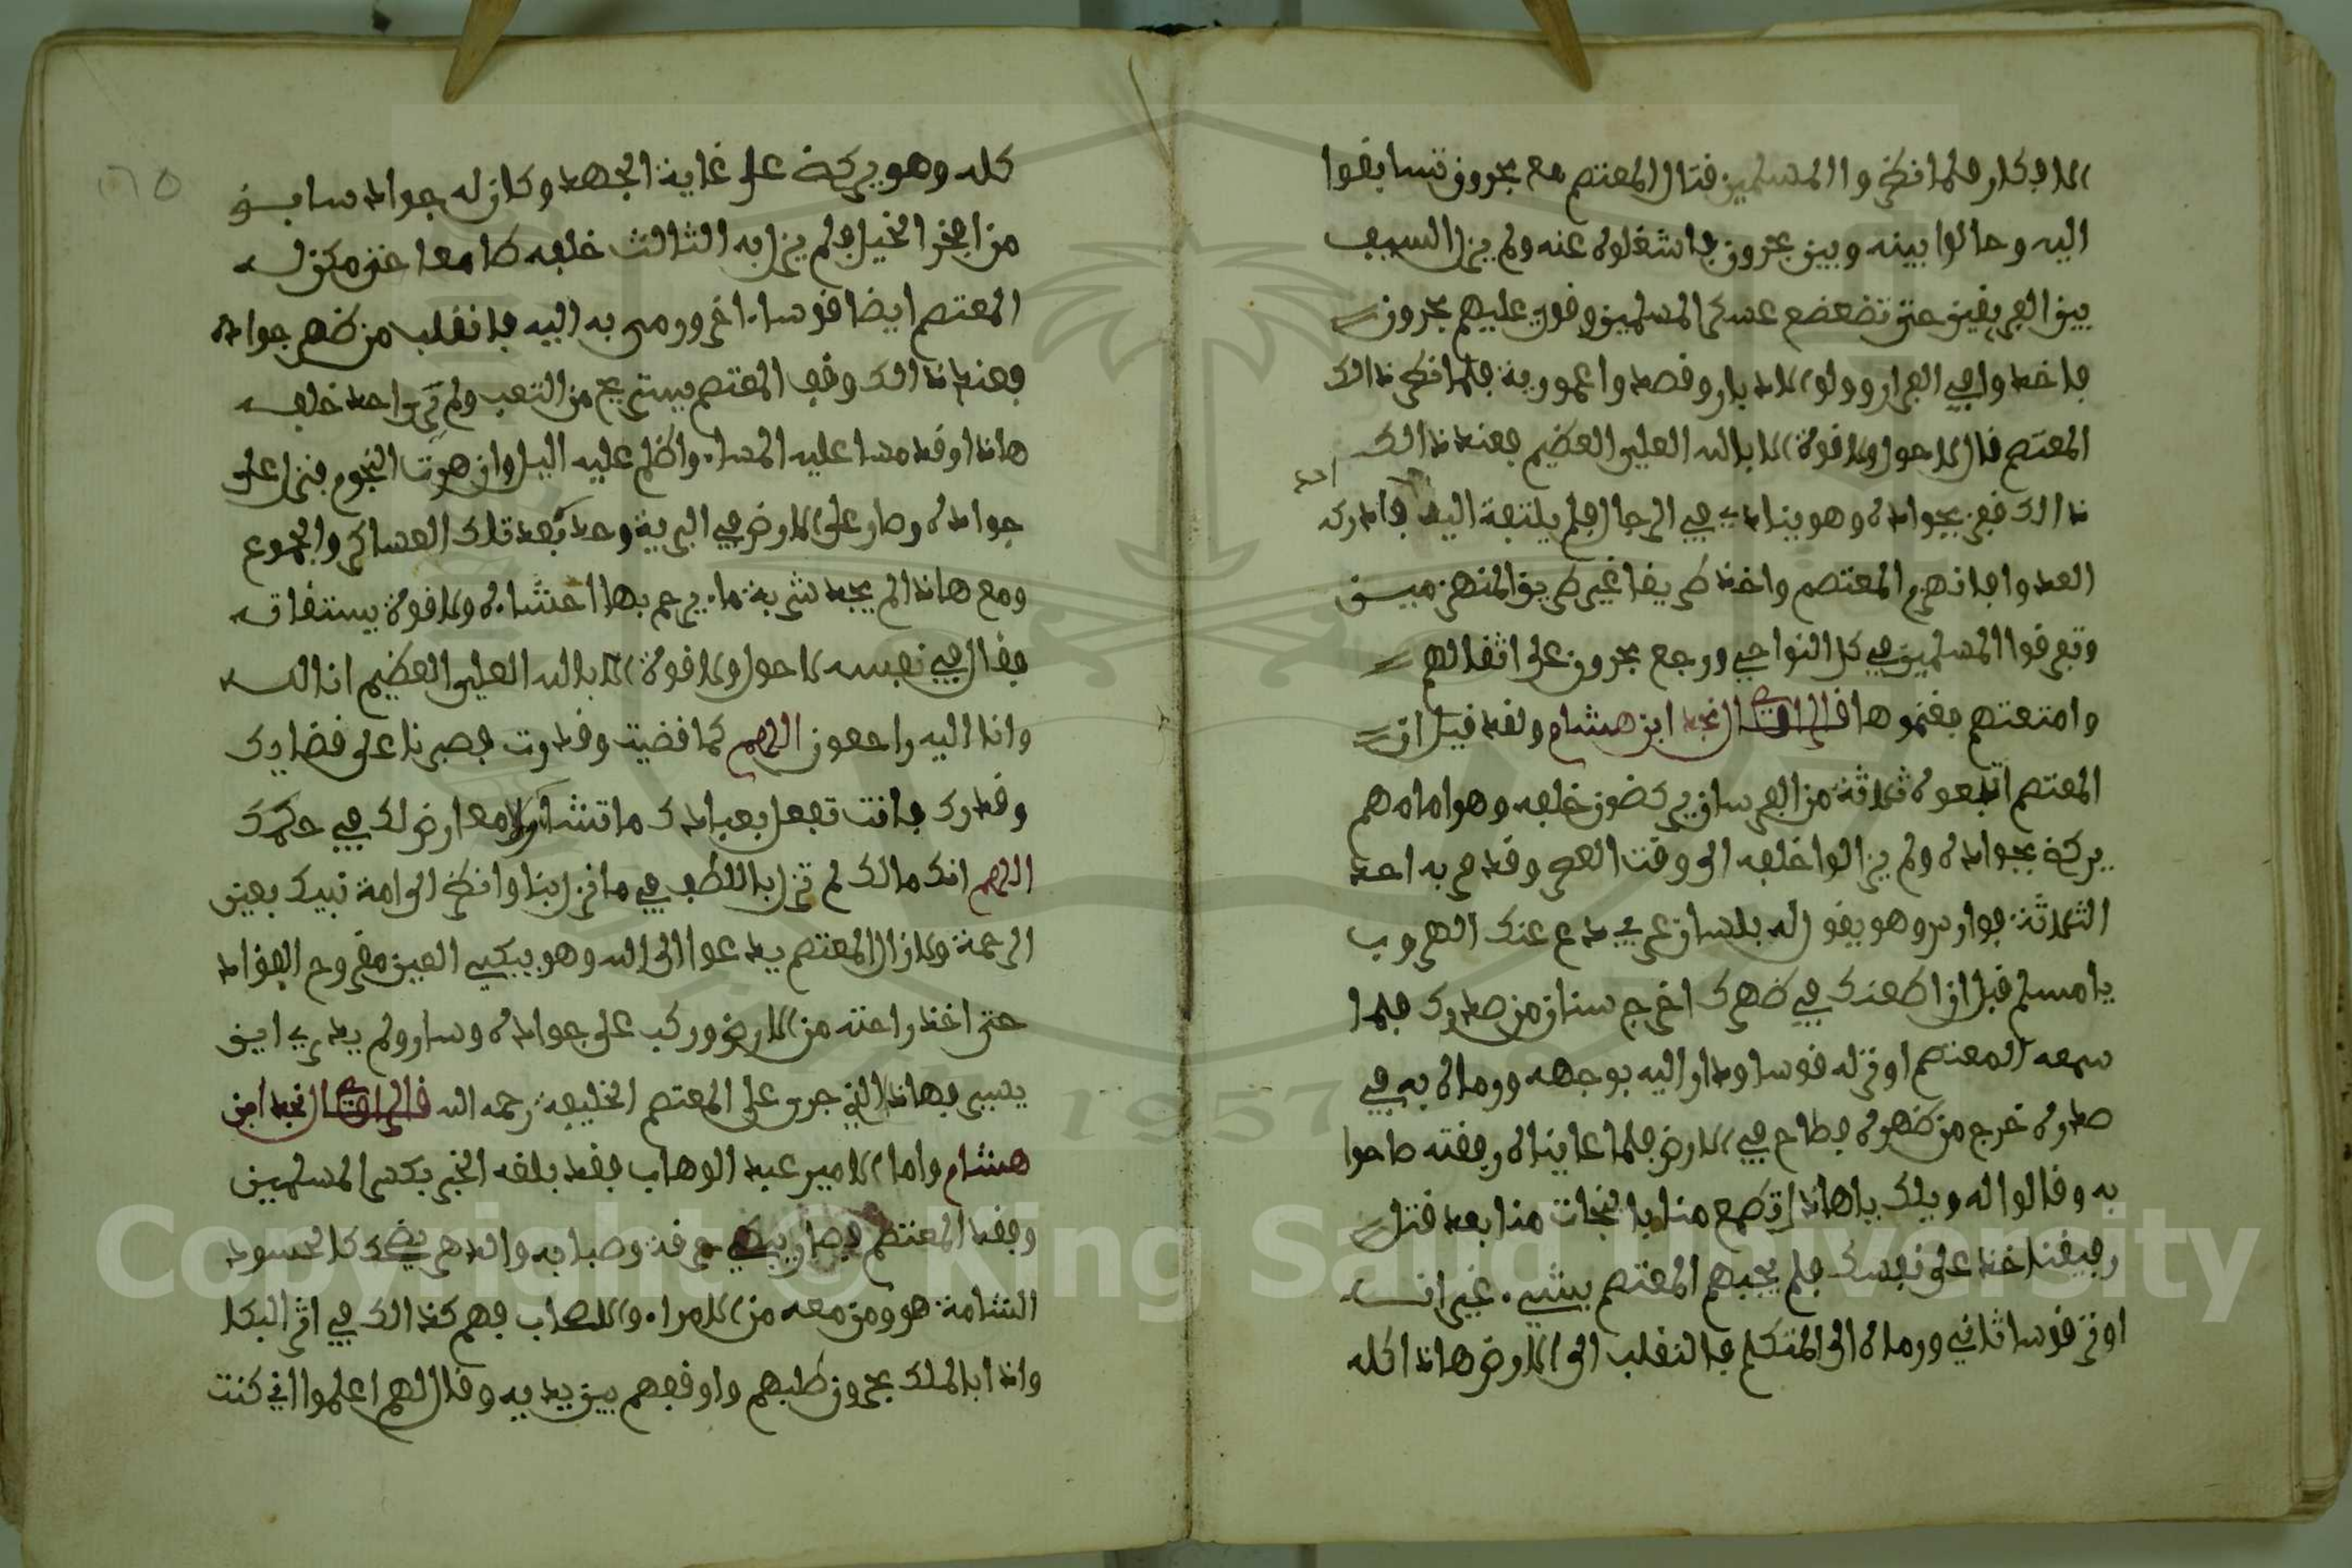 الافكار فلما نظروا المسلمين قتال المعتصم مع بحرون تسابقوا
اليه وحالوا بينه وبين بحرون فاشغلوه عنه ولم يزل السيف
بين الفريقين حتى تضعضع عسكر المسلمين وقوي عليهم بحرون
فاخذوا في الفرار وولوا الادبار وقصدوا عمورية فلما نظر ذالك
المعتصم قال لا حول ولا قوة الا بالله العلي العظيم فعند ذالك
ذالك قفز بجواده وهو ينادي في الرجال فلم يلتفة اليه احد فادركه
العدو فانهزم المعتصم واخذ طريقا غير طريق المنهزمين
وتفرقوا المسلمين في كل النواحي ورجع بحرون على اثقالهم
وامتعتهم فغنموها قال الراوي النجد ابن هشام ولقد قيل ان
المعتصم اتبعوه ثلاثة من الفرسان يركضون خلفه وهو امامهم
يركض بجواده ولم يزالوا خلفه الى وقت العصر وقد قرب به احد
الثلاثة فوارس وهو يقول له بلسان عربي دع عنك الهروب
يا مسلم قبل ان اطعنك في ظهرك اخرج سنان من صدرك فلما
سمعه المعتصم اوتر له قوسا ودار اليه بوجهه ورماه به في
صدره خرج من ظهره فطاح في الارض فلما عايناه رفقته صاحوا
به وقالوا له ويلك يا هاذا تطمع منا بالنجات منا بعد قتل
رفيقنا خذ على نفسك فلم يجبهم المعتصم بشيء غير انه
اوتر قوسا ثاني ورماه الى المتكلم فالنقلب الى الارض هاذا كله
كله وهو يركض على غاية الجهد وكان له جواد سابق
من افخر الخيل فلم يزل به الثالث خلفه طامعا حتى مكن له
المعتصم ايضا قوسا اخر ورمى به اليه فانقلب من ظهر جواده
فعند ذالك وقف المعتصم يستريح من التعب ولم يرى احد خلفه
هاذا وقد مسا عليه المساء واظلم عليه اليل وازهرت النجوم فنزل على
جواده وصار على الارض في البرية وحد بعد تلك العساكر والجموع
ومع هاذا لم يجد شربة ماء يرحم بها احشاه ولا قوة يستقاته
فقال في نفسه لا حول ولا قوة الا بالله العلي العظيم انا لله
وانا اليه راجعون اللهم كما قضيت وقدرت فصبرنا على قضايك
وقدرك فانت تفعل بعبادك ما تشاء ولا معارض لك في حكمك
اللهم انك مالك لم تزل باللطف في ما نزل بنا وانظر الى امة نبيك بعين
الرحمة ولا زال المعتصم يدعوا الى الله وهو يبكي العين مقروح الفواد
حتى اخذ راحته من الارض وركب على جواده وسار ولم يدري اين
يسير فهاذا الذي جرى على المعتصم الخليفة رحمه الله قال الراوي النجد ابن
هشام واما الامير عبد الوهاب فقد بلغه الخبر بكسر المسلمين
وفقد المعتصم فصار يبكي حرقة وصبابه والدهر يضحك كالحسود
الشامة هو ومن معه من الامراء والاصحاب فهم كذالك في اثر البكا
واذا بالملك بحرون طلبهم واوقفهم بين يديه وقال لهم اعلموا اني كنت